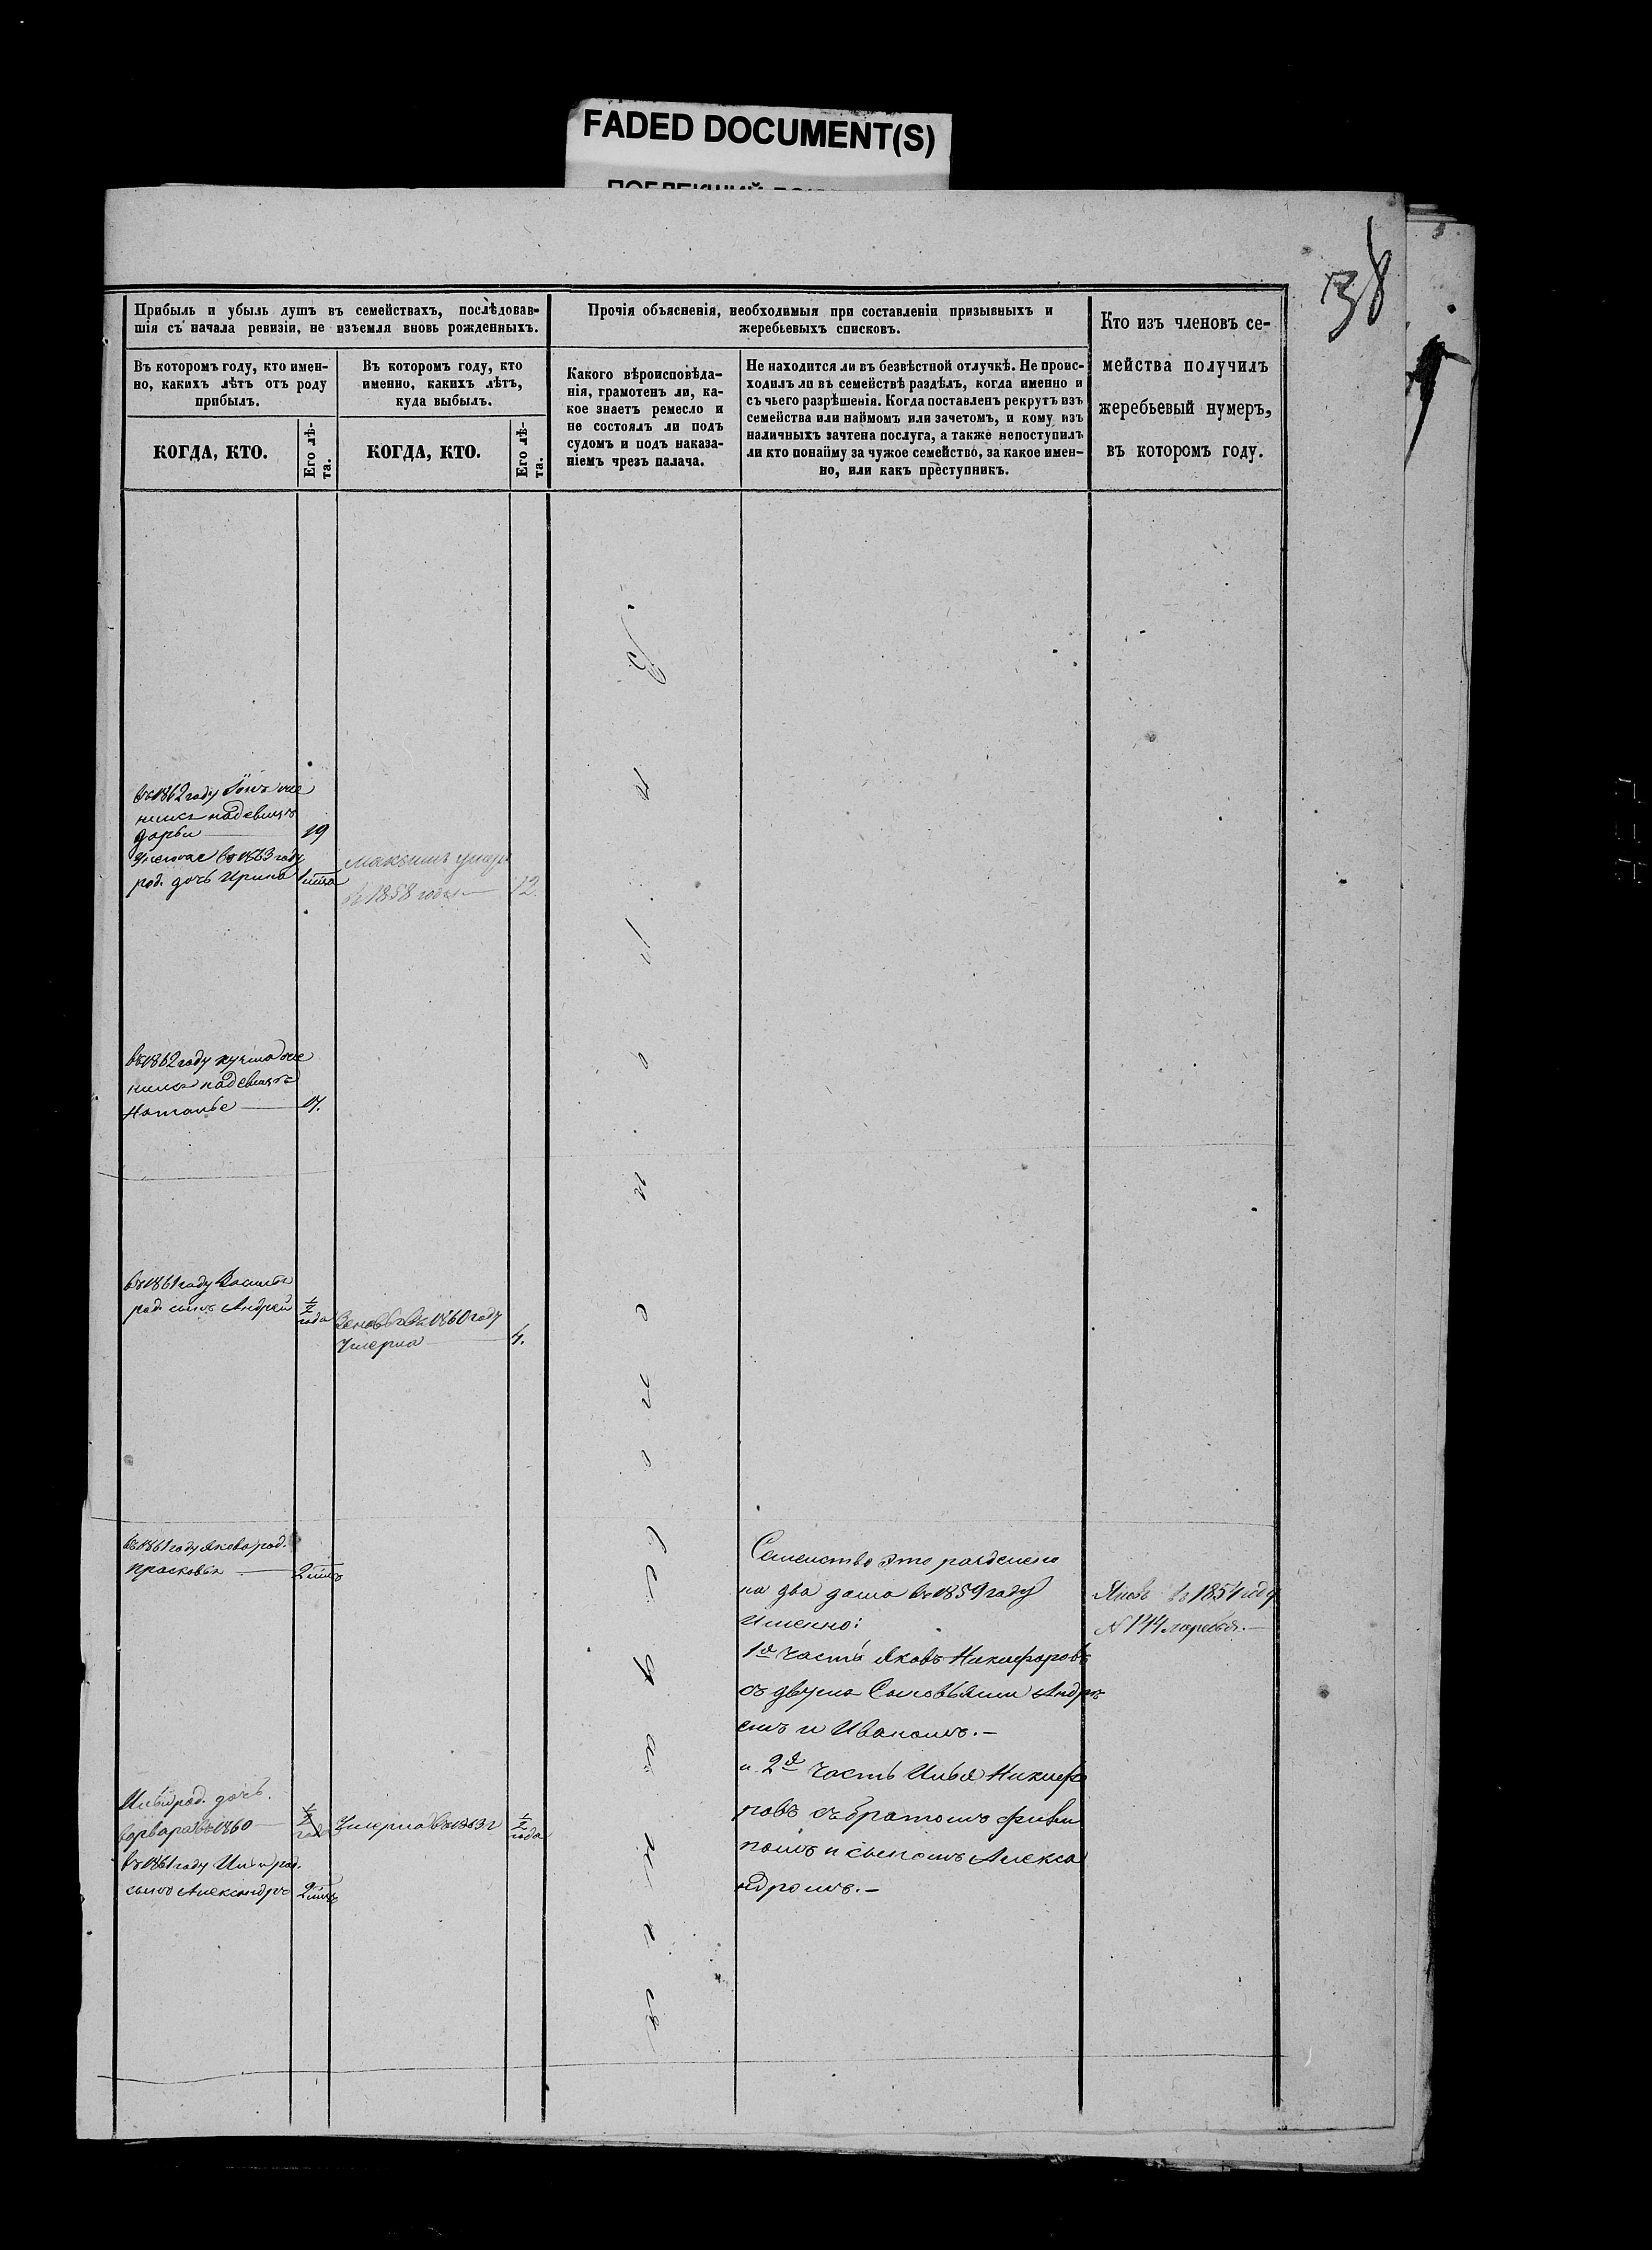 FADED DOCUMENT(S)
38
Прибыль и убыль душъ въ семействахъ, послѣдовав-
шія съ начала ревизіи, не изъемля вновь рожденныхъ.
Въ которомъ году, кто имен-
но, какихъ лѣтъ отъ роду
прибылъ.
КОГДА, КТО.
Его лѣ-
та.
Въ которомъ году, кто
именно, какихъ лѣтъ,
куда выбылъ.
КОГДА, КТО.
Его лѣ-
та.
Прочія объясненія, необходимыя при составленіи призывныхъ и
жеребьевыхъ списковъ.
Какого вѣроисповѣда-
нія, грамотенъ ли, ка-
кое знаетъ ремесло и
не состоялъ ли подъ
судомъ и подъ наказа-
ніемъ чрезъ палача.
Не находится ли въ безвѣстной отлучкѣ. Не проис-
ходилъ ли въ семействѣ раздѣлъ, когда именно и
съ чьего разрѣшенія. Когда поставленъ рекрутъ изъ
семейства или наймомъ или зачетомъ, и кому изъ
наличныхъ зачтена послуга, а также непоступилъ
ли кто понайму за чужое семейство, за какое имен-
но, или какъ преступникъ.
Кто изъ членовъ се-
мейства получилъ
жеребьевый нумеръ,
въ которомъ году.
въ 1862 году же
нился на девицѣ
Дарьи 19
въ 1863 году
род. дочь Ирина
Максимъ умеръ
въ 1858 году 12.
въ 1862 году же
нился на девицѣ
Наталье 17.
въ 1861 году
род. сынъ Андрей 1/2 года
въ 1860 году
умерла 4.
въ 1861 году Якова род.
Прасковья 2
Семейство это разделено
на два дома въ 1859 году
Именно:
1я часть Яковъ Никифоровъ
съ двумя Сыновьями Андре
емъ и Иваномъ.-
и 2я часть Илья Никифо
ровъ съ братомъ Фили
помъ и сыномъ Алекса
ндромъ.-
Яковъ въ 1854 году
№ 144
Ильи род. дочь
Варвара въ 1860 1/2 года
умерла въ 1863 г 1/2 года
въ 1861 году Ильи род.
сынъ Александръ 2